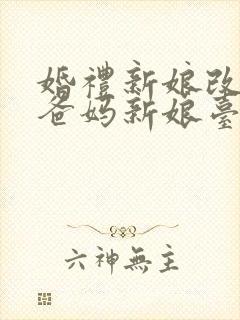 婚禮新娘改
爸妈新娘臺
六神無主